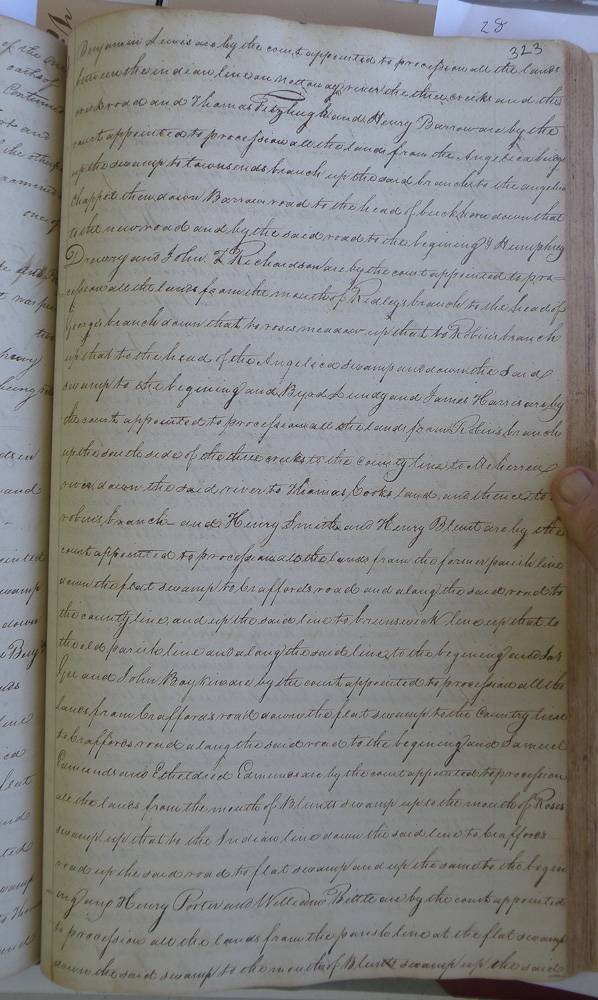 28
323
Benjamin Lewis are by the court appointed to procession all the lands
between the indian line on nottoway river the three creeks and the
road and Thomas Fitzhugh and Henry Barrow are by the
court appointed to procession all the lands from the Angelica bridge
up the swamp to townsends branch up the said branch to the angelica
Chappel then down Barrow road to the head of buckhorn down that
to the new road and by the said road to the begining & Humphrey
Drewery and John T Richardson are by the court appointed to pro=
cession all the lands from the mouth of Ridleys branch to the head of
Georges branch down that to roses meadow up that to Robins branch
up that to the head of the Angelica swamp and down the said
swamp to the begining and Byrd Lundy and James Harris are by
the court appointed to procession all the lands from Robins branch
up the south side of the three creeks to the county line to Meherren
river down the said river to Thomas Cooks land and thence to
robins branch - and Henry Smith and Henry Blunt are by the
court appointed to procession all the lands from the former parish line
down the flat swamp to braffords road and along the said road to
the county line and up the said line to brunswick line up that to
the old parish line and along the said line to the begining and
and John Boykin are by the court appointed to procession all the
lands from braffords road down the flat swamp to the Country line
to braffords road along the said road to the begining and Samuel
Edmunds and Etheldred Edmunds are by the court appointed to procession
all the lands from the mouth of Blunts swamp up to the mouth of Roses
swamp up that to the Indian line down the said line to braffords
road up the said road to flat swamp and up the same to the begin
ing and Henry Porter and William Bittle are by the court appointed
to procession all the lands from the parish line at the flat swamp
down the said swamp to the mouth of Blunts swamp up the said